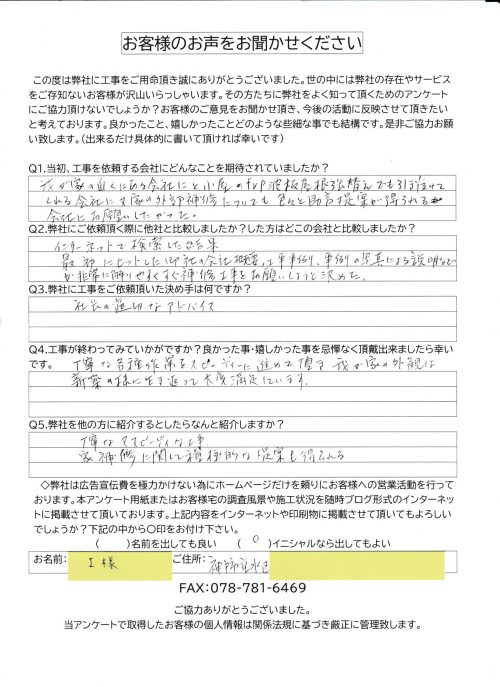 お客様のお声をお聞かせください
この度は弊社に工事をご用命頂き誠にありがとうございました。世の中には弊社の存在やサービス
をご存知ないお客様が沢山いらっしゃいます。その方たちに弊社をよく知って頂くためのアンケー
トにご協力頂けないでしょうか？お客様のご意見をお聞かせ頂き、今後の活動に反映させて頂きたい
と考えております。良かったこと、嬉しかったことどのような些細な事でも結構です。是非ご協力お願
い致します。（出来るだけ具体的に書いて頂ければ幸いです）
Q1.当初、工事を依頼する会社にどんなことを期待されていましたか？
我が家の近くにある会社にと小屋のFRP波板屋根張替えでも引き受けて
くれる会社に又家の外部補修についても色々と助言提案が得られる
会社にお願いしたかった。
Q2.弊社にご依頼頂く際に他社と比較しましたか？した方はどこの会社と比較しましたか？
インターネットで検索した結果
最初にヒットした御社の会社概要、工事事例、事例の写真による説明など
が非常に解りやすくすぐ補修工事をお願いしようと決めた。
Q3.弊社に工事をご依頼頂いた決め手は何ですか？
社長の適切なアドバイス
Q4.工事が終わってみていかがですか？良かった事・嬉しかった事を忌憚なく頂戴出来ましたら幸い
です。 丁寧な各種作業をスピーディーに進めて頂き 我が家の外観は
新築の様に生き返って大変満足しています。
Q5.弊社を他の方に紹介するとしたらなんと紹介しますか？
丁寧な スピーディな工事
家補修に関して積極的な提案も得られる
◇弊社は広告宣伝費を極力かけない為にホームページだけを頼りにお客様への営業活動を行って
おります。本アンケート用紙またはお客様宅の調査風景や施工状況を随時ブログ形式のインターネッ
トに掲載させて頂いております。上記内容をインターネットや印刷物に掲載させて頂いてもよろしい
でしょうか？下記の中から〇印をお付け下さい。
（　）名前を出しても良い （〇）イニシャルなら出してもよい
お名前： I様 ご住所： 神戸市垂水区
FAX：078-781-6469
ご協力ありがとうございました。
当アンケートで取得したお客様の個人情報は関係法規に基づき厳正に管理致します。